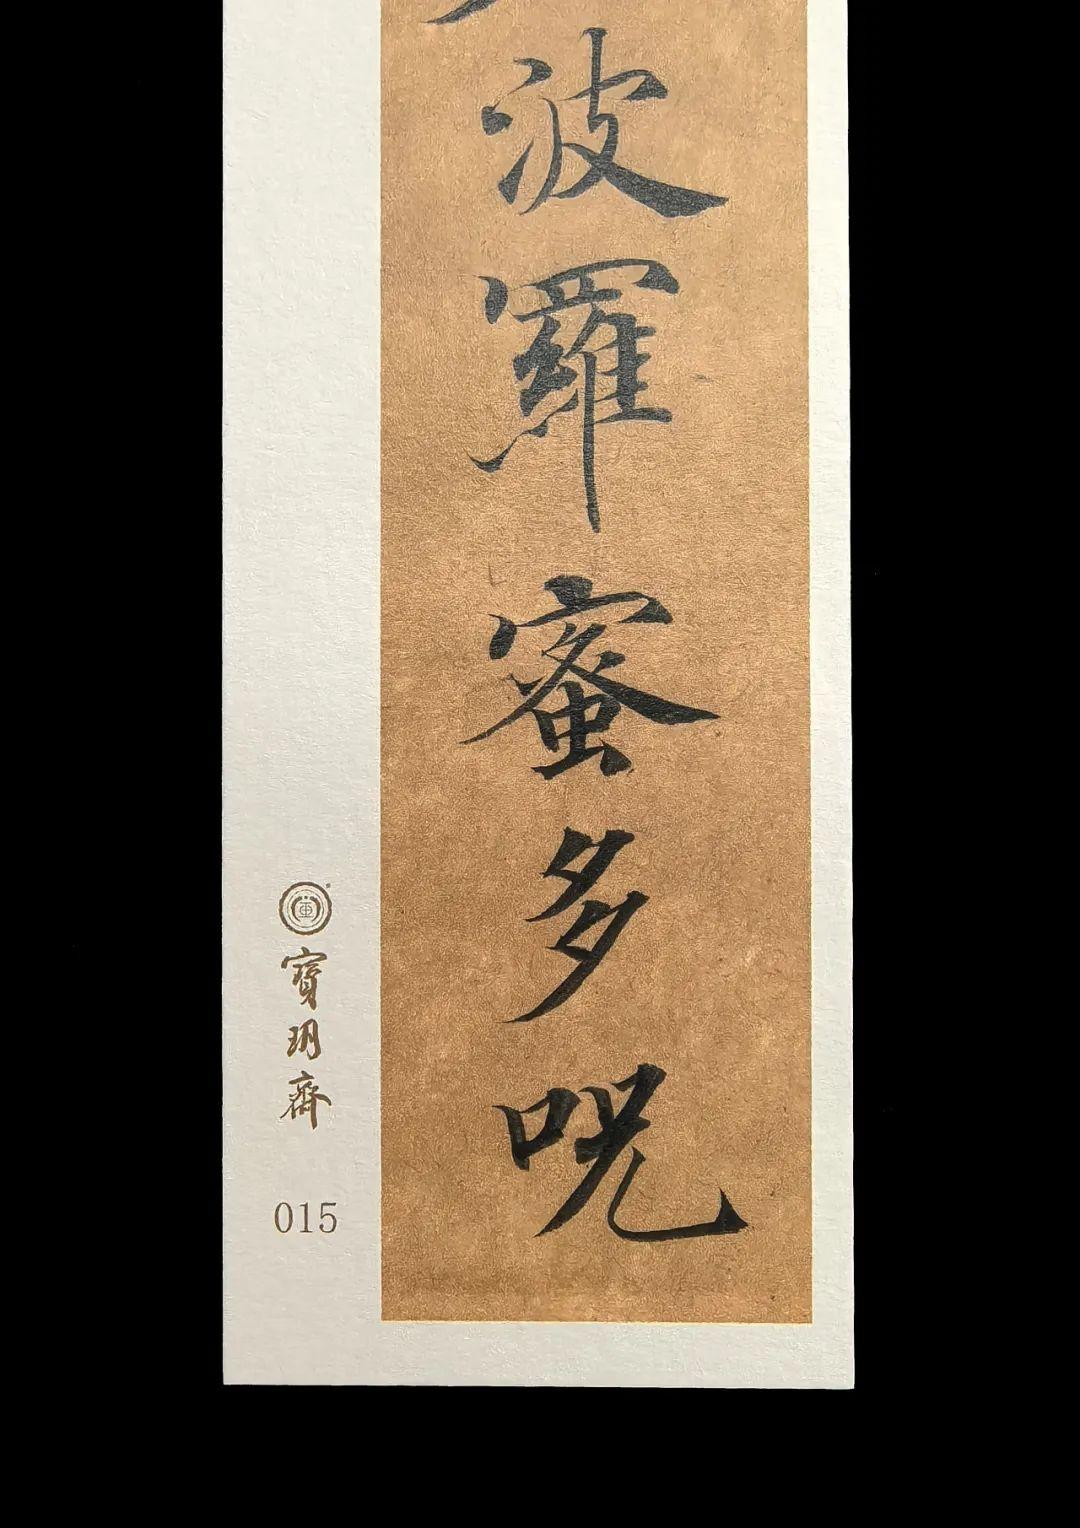 波羅蜜多咒
寶玥齋
015